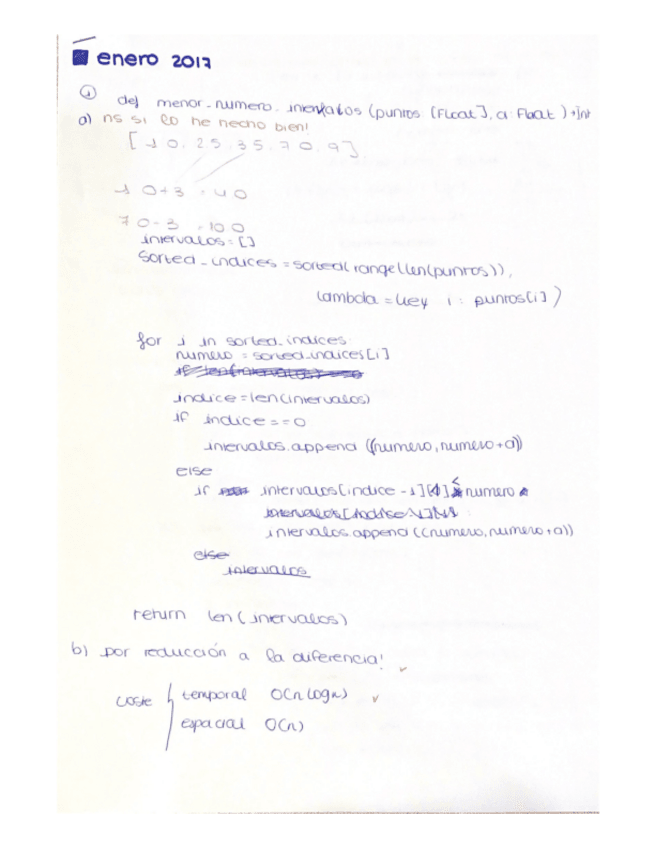 enero 2017
① def menor_numero_intervalos (puntos [Float], a: Float) → Int
a) ns si lo he hecho bien!
[10, 25, 35, 70, 9]
10+3 = 40
70-3 = 100
intervalos = []
sorted_indices = sorted(range(len(puntos)),
lambda = key i : puntos[i])
for i in sorted_indices
numero = sorted_indices[i]
indice = len(intervalos)
if indice == 0
intervalos.append ((numero, numero+a))
else
if intervalos[indice -1][1] < numero
intervalos.append ((numero, numero+a))
else
intervalos
return len(intervalos)
b) por reducción a la diferencia!
coste
temporal O(n logn)
espacial O(n)